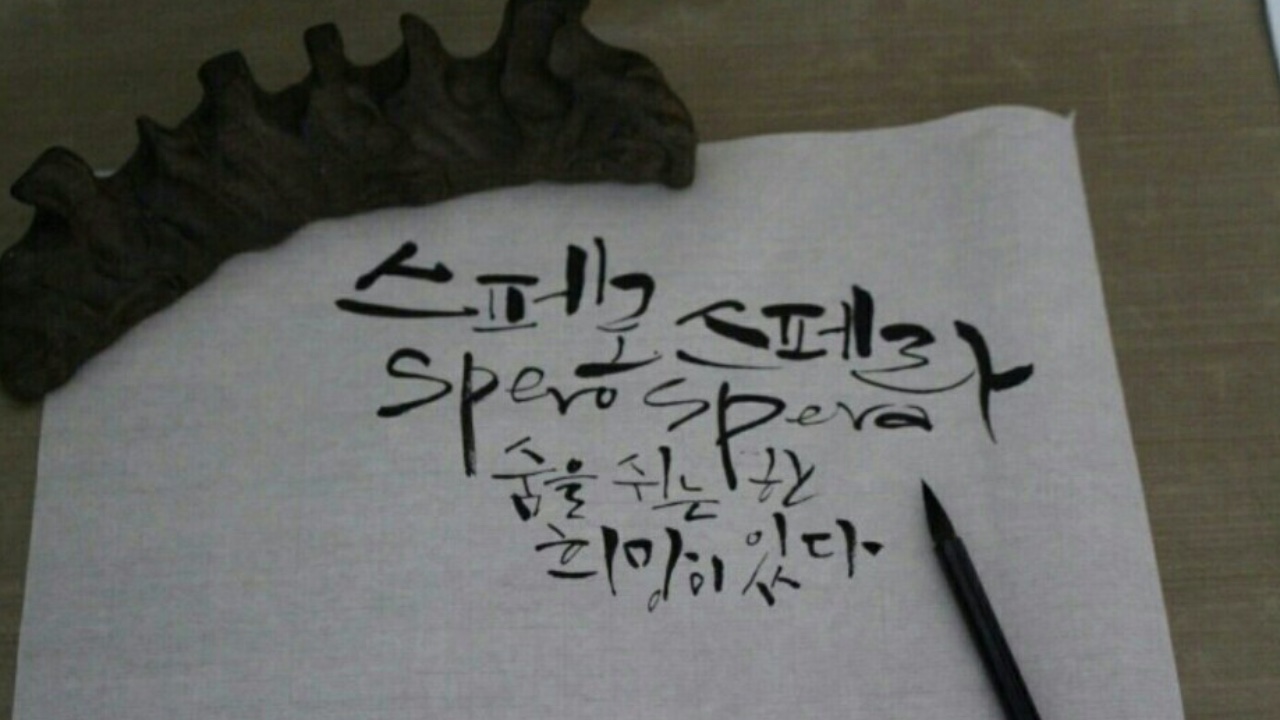 스페로 스페라
spero spera
숨을 쉬는 한
희망이 있다.